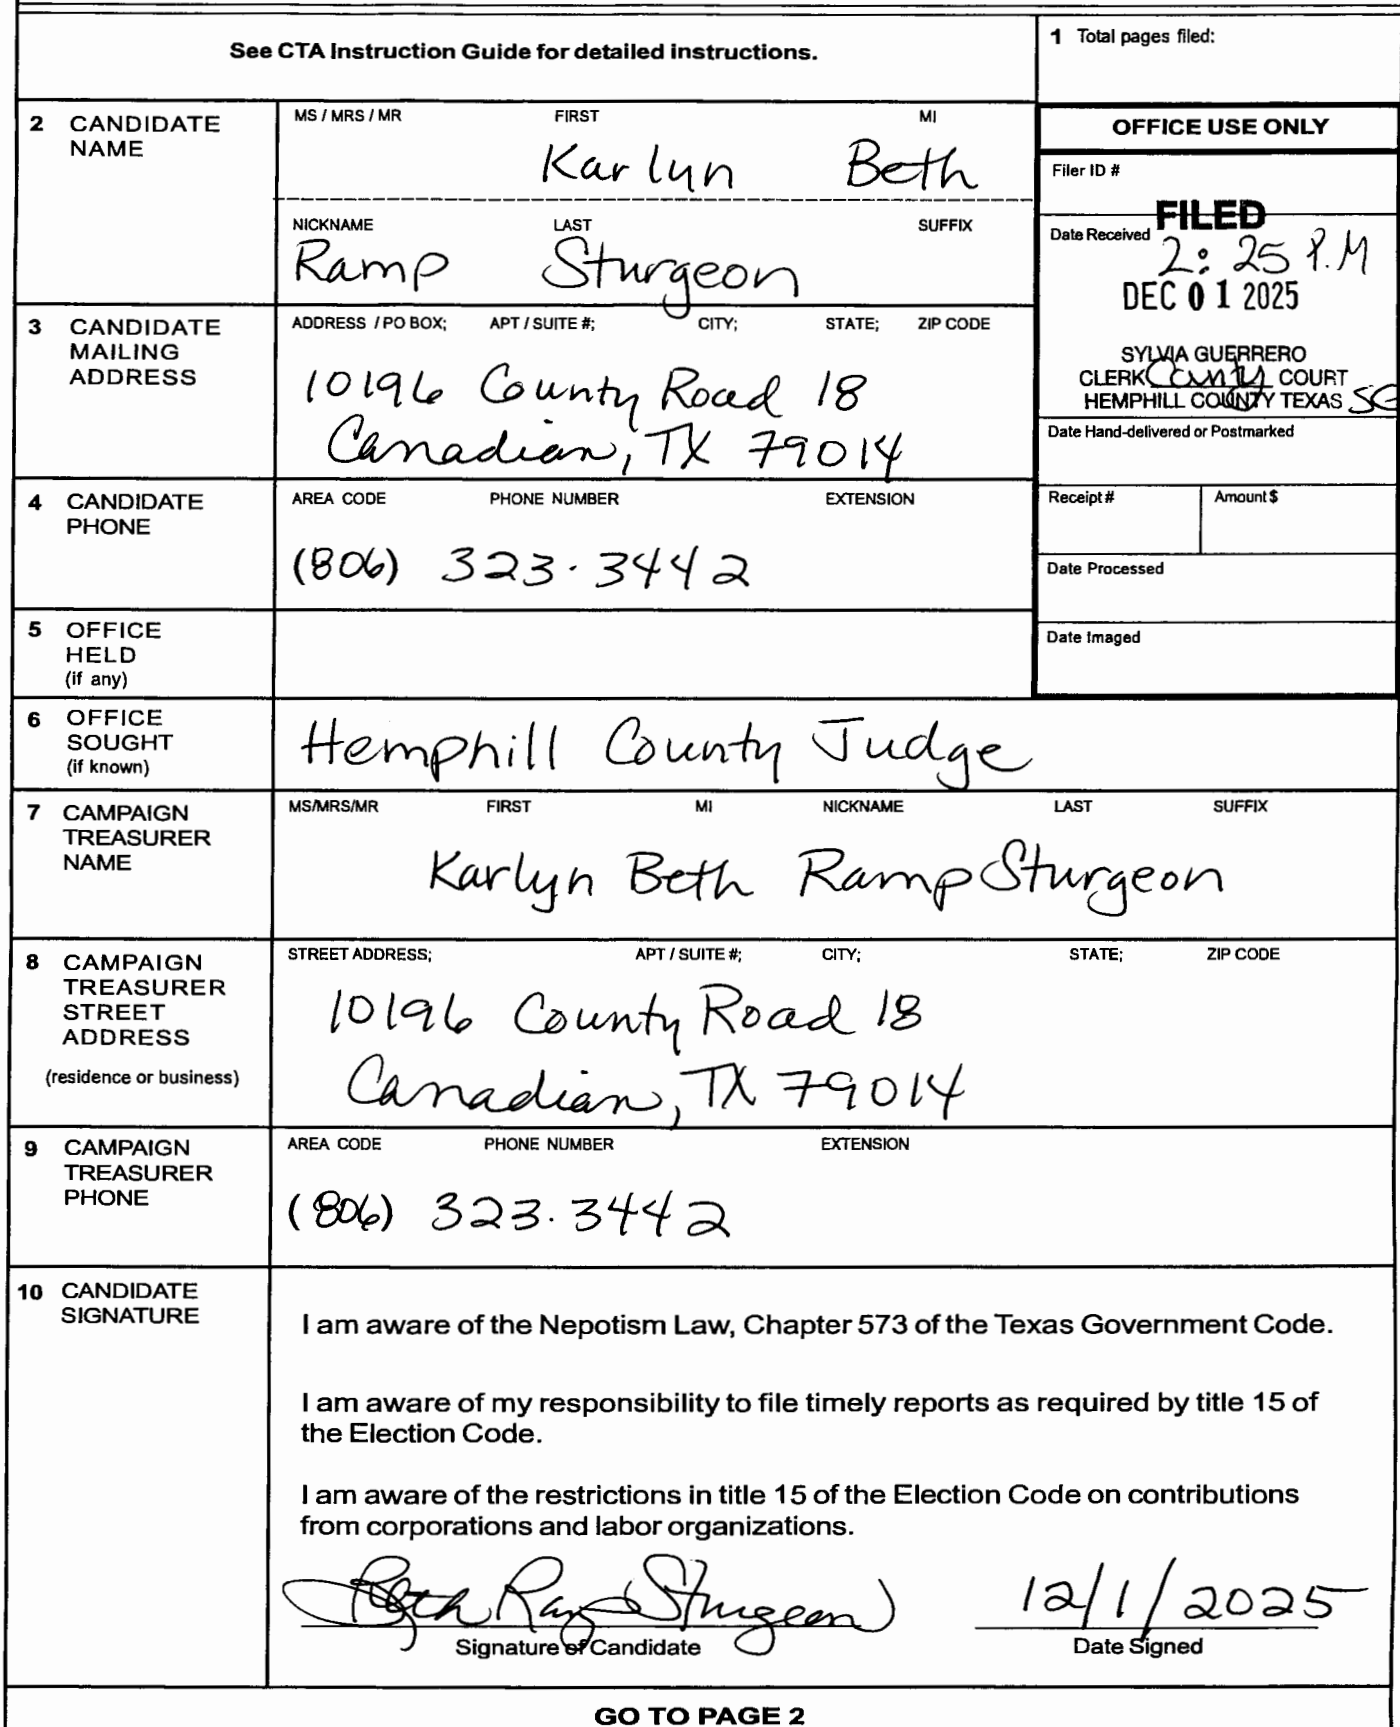 See CTA Instruction Guide for detailed instructions.
1 Total pages filed:
2 CANDIDATE NAME
MS / MRS / MR FIRST MI
Karlyn Beth
NICKNAME LAST SUFFIX
Ramp Sturgeon
OFFICE USE ONLY
Filer ID #
FILED
Date Received
2:25 P.M
DEC 01 2025
SYLVIA GUERRERO
CLERK County COURT
HEMPHILL COUNTY TEXAS SG
Date Hand-delivered or Postmarked
Receipt # Amount $
Date Processed
Date Imaged
3 CANDIDATE MAILING ADDRESS
ADDRESS / PO BOX; APT / SUITE #; CITY; STATE; ZIP CODE
10196 County Road 18
Canadian, TX 79014
4 CANDIDATE PHONE
AREA CODE PHONE NUMBER EXTENSION
(806) 323.3442
5 OFFICE HELD (if any)
6 OFFICE SOUGHT (if known)
Hemphill County Judge
7 CAMPAIGN TREASURER NAME
MS/MRS/MR FIRST MI NICKNAME LAST SUFFIX
Karlyn Beth Ramp Sturgeon
8 CAMPAIGN TREASURER STREET ADDRESS
(residence or business)
STREET ADDRESS; APT / SUITE #; CITY; STATE; ZIP CODE
10196 County Road 18
Canadian, TX 79014
9 CAMPAIGN TREASURER PHONE
AREA CODE PHONE NUMBER EXTENSION
(806) 323.3442
10 CANDIDATE SIGNATURE
I am aware of the Nepotism Law, Chapter 573 of the Texas Government Code.
I am aware of my responsibility to file timely reports as required by title 15 of
the Election Code.
I am aware of the restrictions in title 15 of the Election Code on contributions
from corporations and labor organizations.
Beth Ramp Sturgeon 12/1/2025
Signature of Candidate Date Signed
GO TO PAGE 2